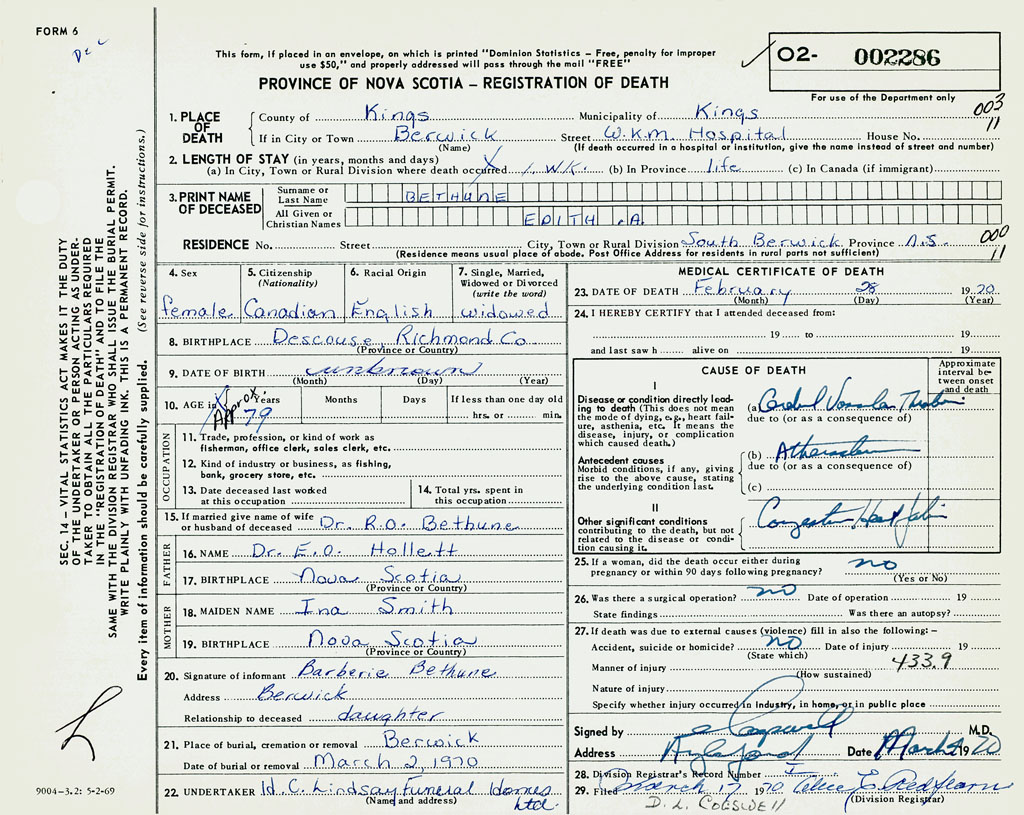 FORM 6
Dec
This form, if placed in an envelope, on which is printed "Dominion Statistics – Free, penalty for improper
use $50," and properly addressed will pass through the mail "FREE"
PROVINCE OF NOVA SCOTIA – REGISTRATION OF DEATH
O2- 002286
For use of the Department only
003
11
1. PLACE OF DEATH
County of Kings Municipality of Kings
If in City or Town Berwick Street W.K.M. Hospital House No.
(Name) (If death occurred in a hospital or institution, give the name instead of street and number)
2. LENGTH OF STAY (in years, months and days)
(a) In City, Town or Rural Division where death occurred 1 WK. (b) In Province life (c) In Canada (if immigrant)
3. PRINT NAME OF DECEASED
Surname or Last Name BETHUNE
All Given or Christian Names EDITH A
RESIDENCE No. Street City, Town or Rural Division South Berwick Province N.S.
000
11
(Residence means usual place of abode. Post Office Address for residents in rural parts not sufficient)
4. Sex female
5. Citizenship (Nationality) Canadian
6. Racial Origin English
7. Single, Married, Widowed or Divorced (write the word) widowed
8. BIRTHPLACE Descouse Richmond Co
(Province or Country)
9. DATE OF BIRTH unknown
(Month) (Day) (Year)
10. AGE in Years Months Days If less than one day old
Approx. 79 hrs. or min.
OCCUPATION
11. Trade, profession, or kind of work as
fisherman, office clerk, sales clerk, etc.
12. Kind of industry or business, as fishing,
bank, grocery store, etc.
13. Date deceased last worked
at this occupation
14. Total yrs. spent in
this occupation
15. If married give name of wife
or husband of deceased Dr. R.O. Bethune
FATHER
16. NAME Dr. E.O. Hollett
17. BIRTHPLACE Nova Scotia
(Province or Country)
MOTHER
18. MAIDEN NAME Ina Smith
19. BIRTHPLACE Nova Scotia
(Province or Country)
20. Signature of informant Barberie Bethune
Address Berwick
Relationship to deceased daughter
21. Place of burial, cremation or removal Berwick
Date of burial or removal March 2, 1970
22. UNDERTAKER H.C. Lindsay Funeral Homes Ltd.
(Name and address)
MEDICAL CERTIFICATE OF DEATH
23. DATE OF DEATH February 28 1970
(Month) (Day) (Year)
24. I HEREBY CERTIFY that I attended deceased from:
19 to 19
and last saw h alive on 19
CAUSE OF DEATH
Approximate interval between onset and death
I
Disease or condition directly leading
to death (This does not mean
the mode of dying, e.g., heart failure,
asthenia, etc. It means the
disease, injury, or complication
which caused death.)
(a)
due to (or as a consequence of)
Antecedent causes
Morbid conditions, if any, giving
rise to the above cause, stating
the underlying condition last.
(b)
due to (or as a consequence of)
(c)
II
Other significant conditions
contributing to the death, but not
related to the disease or condition
causing it.
Congestive Heart failure
25. If a woman, did the death occur either during
pregnancy or within 90 days following pregnancy? no
(Yes or No)
26. Was there a surgical operation? no Date of operation 19
State findings Was there an autopsy?
27. If death was due to external causes (violence) fill in also the following: –
Accident, suicide or homicide? no Date of injury 19
(State which)
433.9
Manner of injury
(How sustained)
Nature of injury
Specify whether injury occurred in industry, in home, or in public place
Signed by Cogswell M.D.
Address Aylesford Date March 4 1970
28. Division Registrar's Record Number
29. Filed March 17 1970
(Division Registrar)
D. L. COGSWELL
SEC. 14 – VITAL STATISTICS ACT MAKES IT THE DUTY
OF THE UNDERTAKER OR PERSON ACTING AS UNDERTAKER
TO OBTAIN ALL THE PARTICULARS REQUIRED
IN THE "REGISTRATION OF DEATH" AND TO FILE THE
SAME WITH THE DIVISION REGISTRAR WHO SHALL ISSUE THE BURIAL PERMIT.
WRITE PLAINLY WITH UNFADING INK. THIS IS A PERMANENT RECORD.
Every item of information should be carefully supplied. (See reverse side for instructions.)
9004-3.2: 5-2-69